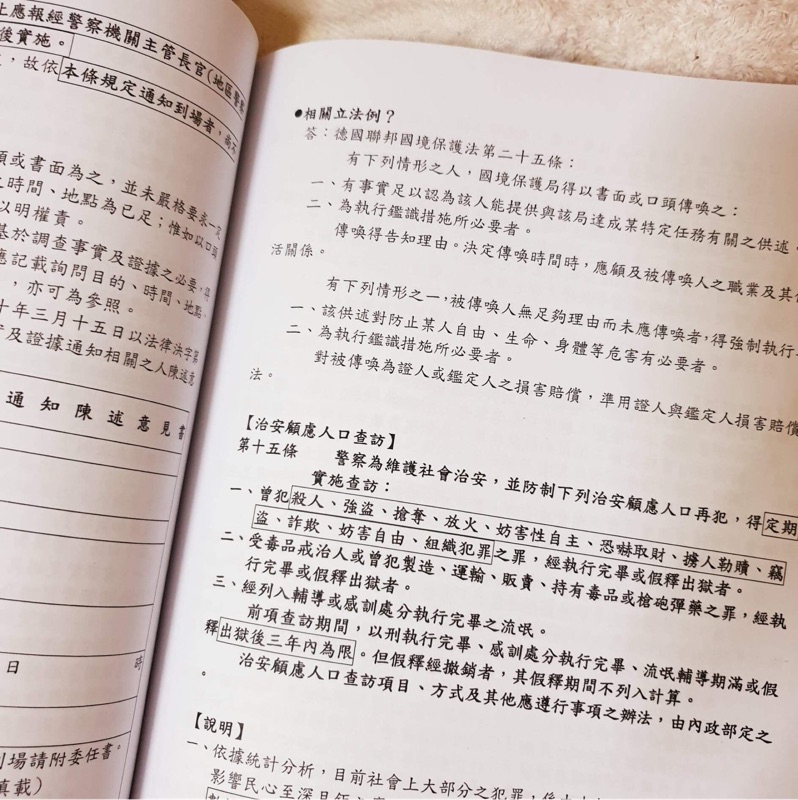 止應報經警察機關主管長官(地區警察
後實施。
，故依本條規定通知到場者，
頭或書面為之，並未嚴格要求一定
之時間、地點為已足；惟如以口頭
以明權責。
基於調查事實及證據之必要，得
應記載詢問目的、時間、地點、
，亦可為參照。
十年三月十五日以法律決字第
實及證據通知相關之人陳述意
通知陳述意見書
日 時
到場請附委任書。
填載)
●相關立法例？
答：德國聯邦國境保護法第二十五條：
有下列情形之人，國境保護局得以書面或口頭傳喚之：
一、有事實足以認為該人能提供與該局達成某特定任務有關之供述。
二、為執行鑑識措施所必要者。
傳喚得告知理由。決定傳喚時間時，應顧及被傳喚人之職業及其他
活關係。
有下列情形之一，被傳喚人無足夠理由而未應傳喚者，得強制執行
一、該供述對防止某人自由、生命、身體等危害有必要者。
二、為執行鑑識措施所必要者。
對被傳喚為證人或鑑定人之損害賠償，準用證人與鑑定人損害賠償
法。
【治安顧慮人口查訪】
第十五條 警察為維護社會治安，並防制下列治安顧慮人口再犯，得定期
實施查訪：
一、曾犯殺人、強盜、搶奪、放火、妨害性自主、恐嚇取財、擄人勒贖、竊
盜、詐欺、妨害自由、組織犯罪之罪，經執行完畢或假釋出獄者。
二、受毒品戒治人或曾犯製造、運輸、販賣、持有毒品或槍砲彈藥之罪，經執
行完畢或假釋出獄者。
三、經列入輔導或感訓處分執行完畢之流氓。
前項查訪期間，以刑執行完畢、感訓處分執行完畢、流氓輔導期滿或假
釋出獄後三年內為限。但假釋經撤銷者，其假釋期間不列入計算。
治安顧慮人口查訪項目、方式及其他應遵行事項之辦法，由內政部定之
。
【說明】
一、依據統計分析，目前社會上大部分之犯罪，係
影響民心至深且鉅